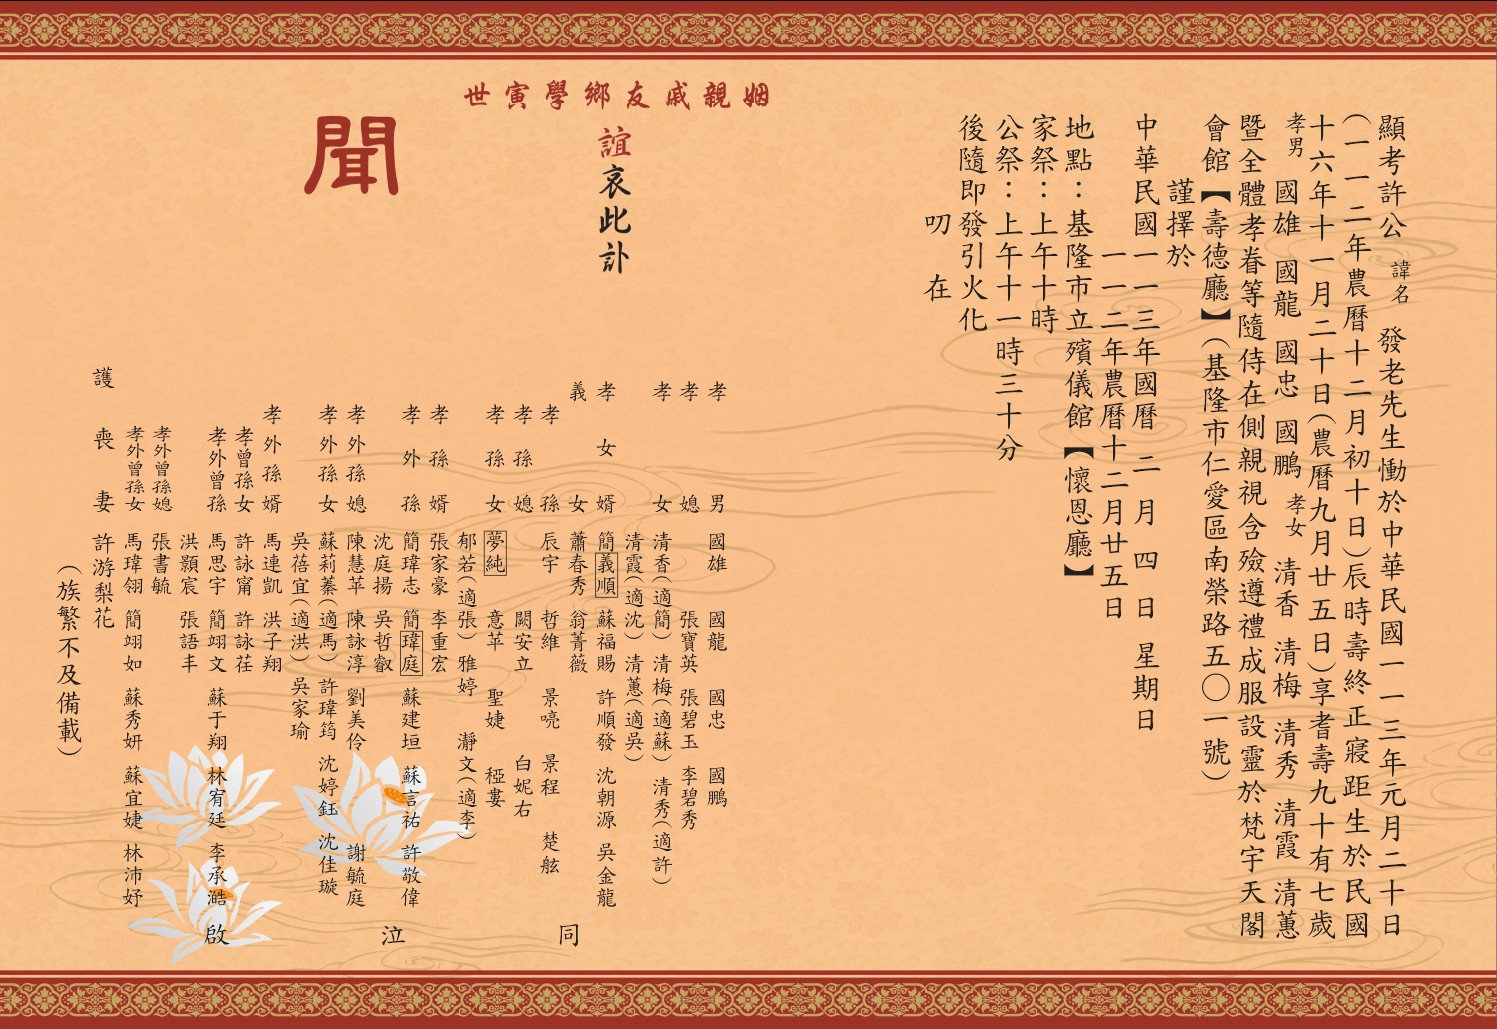 顯考許公 諱名 發老先生慟於中華民國一一三年元月二十日
(一一二年農曆十二月初十日)辰時壽終正寢距生於民國
十六年十一月二十日(農曆九月廿五日)享耆壽九十有七歲
孝男 國雄 國龍 國忠 國鵬 孝女 清香 清梅 清秀 清霞 清蕙
暨全體孝眷等隨侍在側親視含殮遵禮成服設靈於梵宇天閣
會館【壽德廳】(基隆市仁愛區南榮路五〇一號)
謹擇於
中華民國一一三年國曆 二 月 四 日 星期日
一一二年農曆十二月廿五日
地點：基隆市立殯儀館【懷恩廳】
家祭：上午十時
公祭：上午十一時三十分
後隨即發引火化
叨 在
姻親戚友鄉學寅世
誼哀此訃
聞
孝男 國雄 國龍 國忠 國鵬
孝媳 張寶英 張碧玉 李碧秀
孝女 清香(適簡) 清梅(適蘇) 清秀(適許)
清霞(適沈) 清蕙(適吳)
孝女婿 簡義順 蘇福賜 許順發 沈朝源 吳金龍
義女 蕭春秀 翁菁薇
孝孫 辰宇 哲維 景喨 景程 楚舷
孝孫媳 闕安立 白妮右
孝孫女 夢純 意苹 聖婕 稏婁
郁若(適張) 雅婷 瀞文(適李)
孝孫婿 張家豪 李重宏
孝外孫 簡瑋志 簡瑋庭 蘇建垣 蘇言祐 許敬偉
沈庭揚 吳哲叡
孝外孫媳 陳慧苹 陳詠淳 劉美伶 謝毓庭
孝外孫女 蘇莉蓁(適馬) 許瑋筠 沈婷鈺 沈佳璇
吳蓓宜(適洪) 吳家瑜
孝外孫婿 馬連凱 洪子翔
孝曾孫女 許詠甯 許詠荏
孝外曾孫 馬思宇 簡翊文 蘇于翔 林宥廷 李承澔
洪顥宸 張語丰
孝外曾孫媳 張書毓
孝外曾孫女 馬瑋翎 簡翊如 蘇秀妍 蘇宜婕 林沛妤
護喪妻 許游梨花
(族繁不及備載)
同 泣 啟